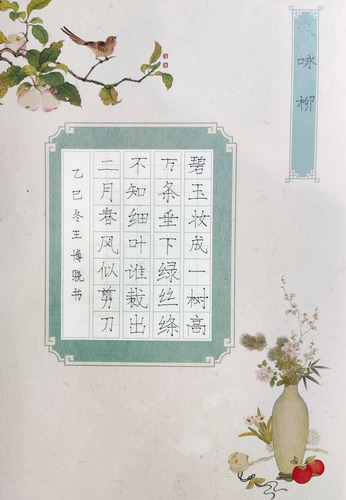 咏柳
碧玉妆成一树高
万条垂下绿丝绦
不知细叶谁裁出
二月春风似剪刀
乙巳冬王博骁书